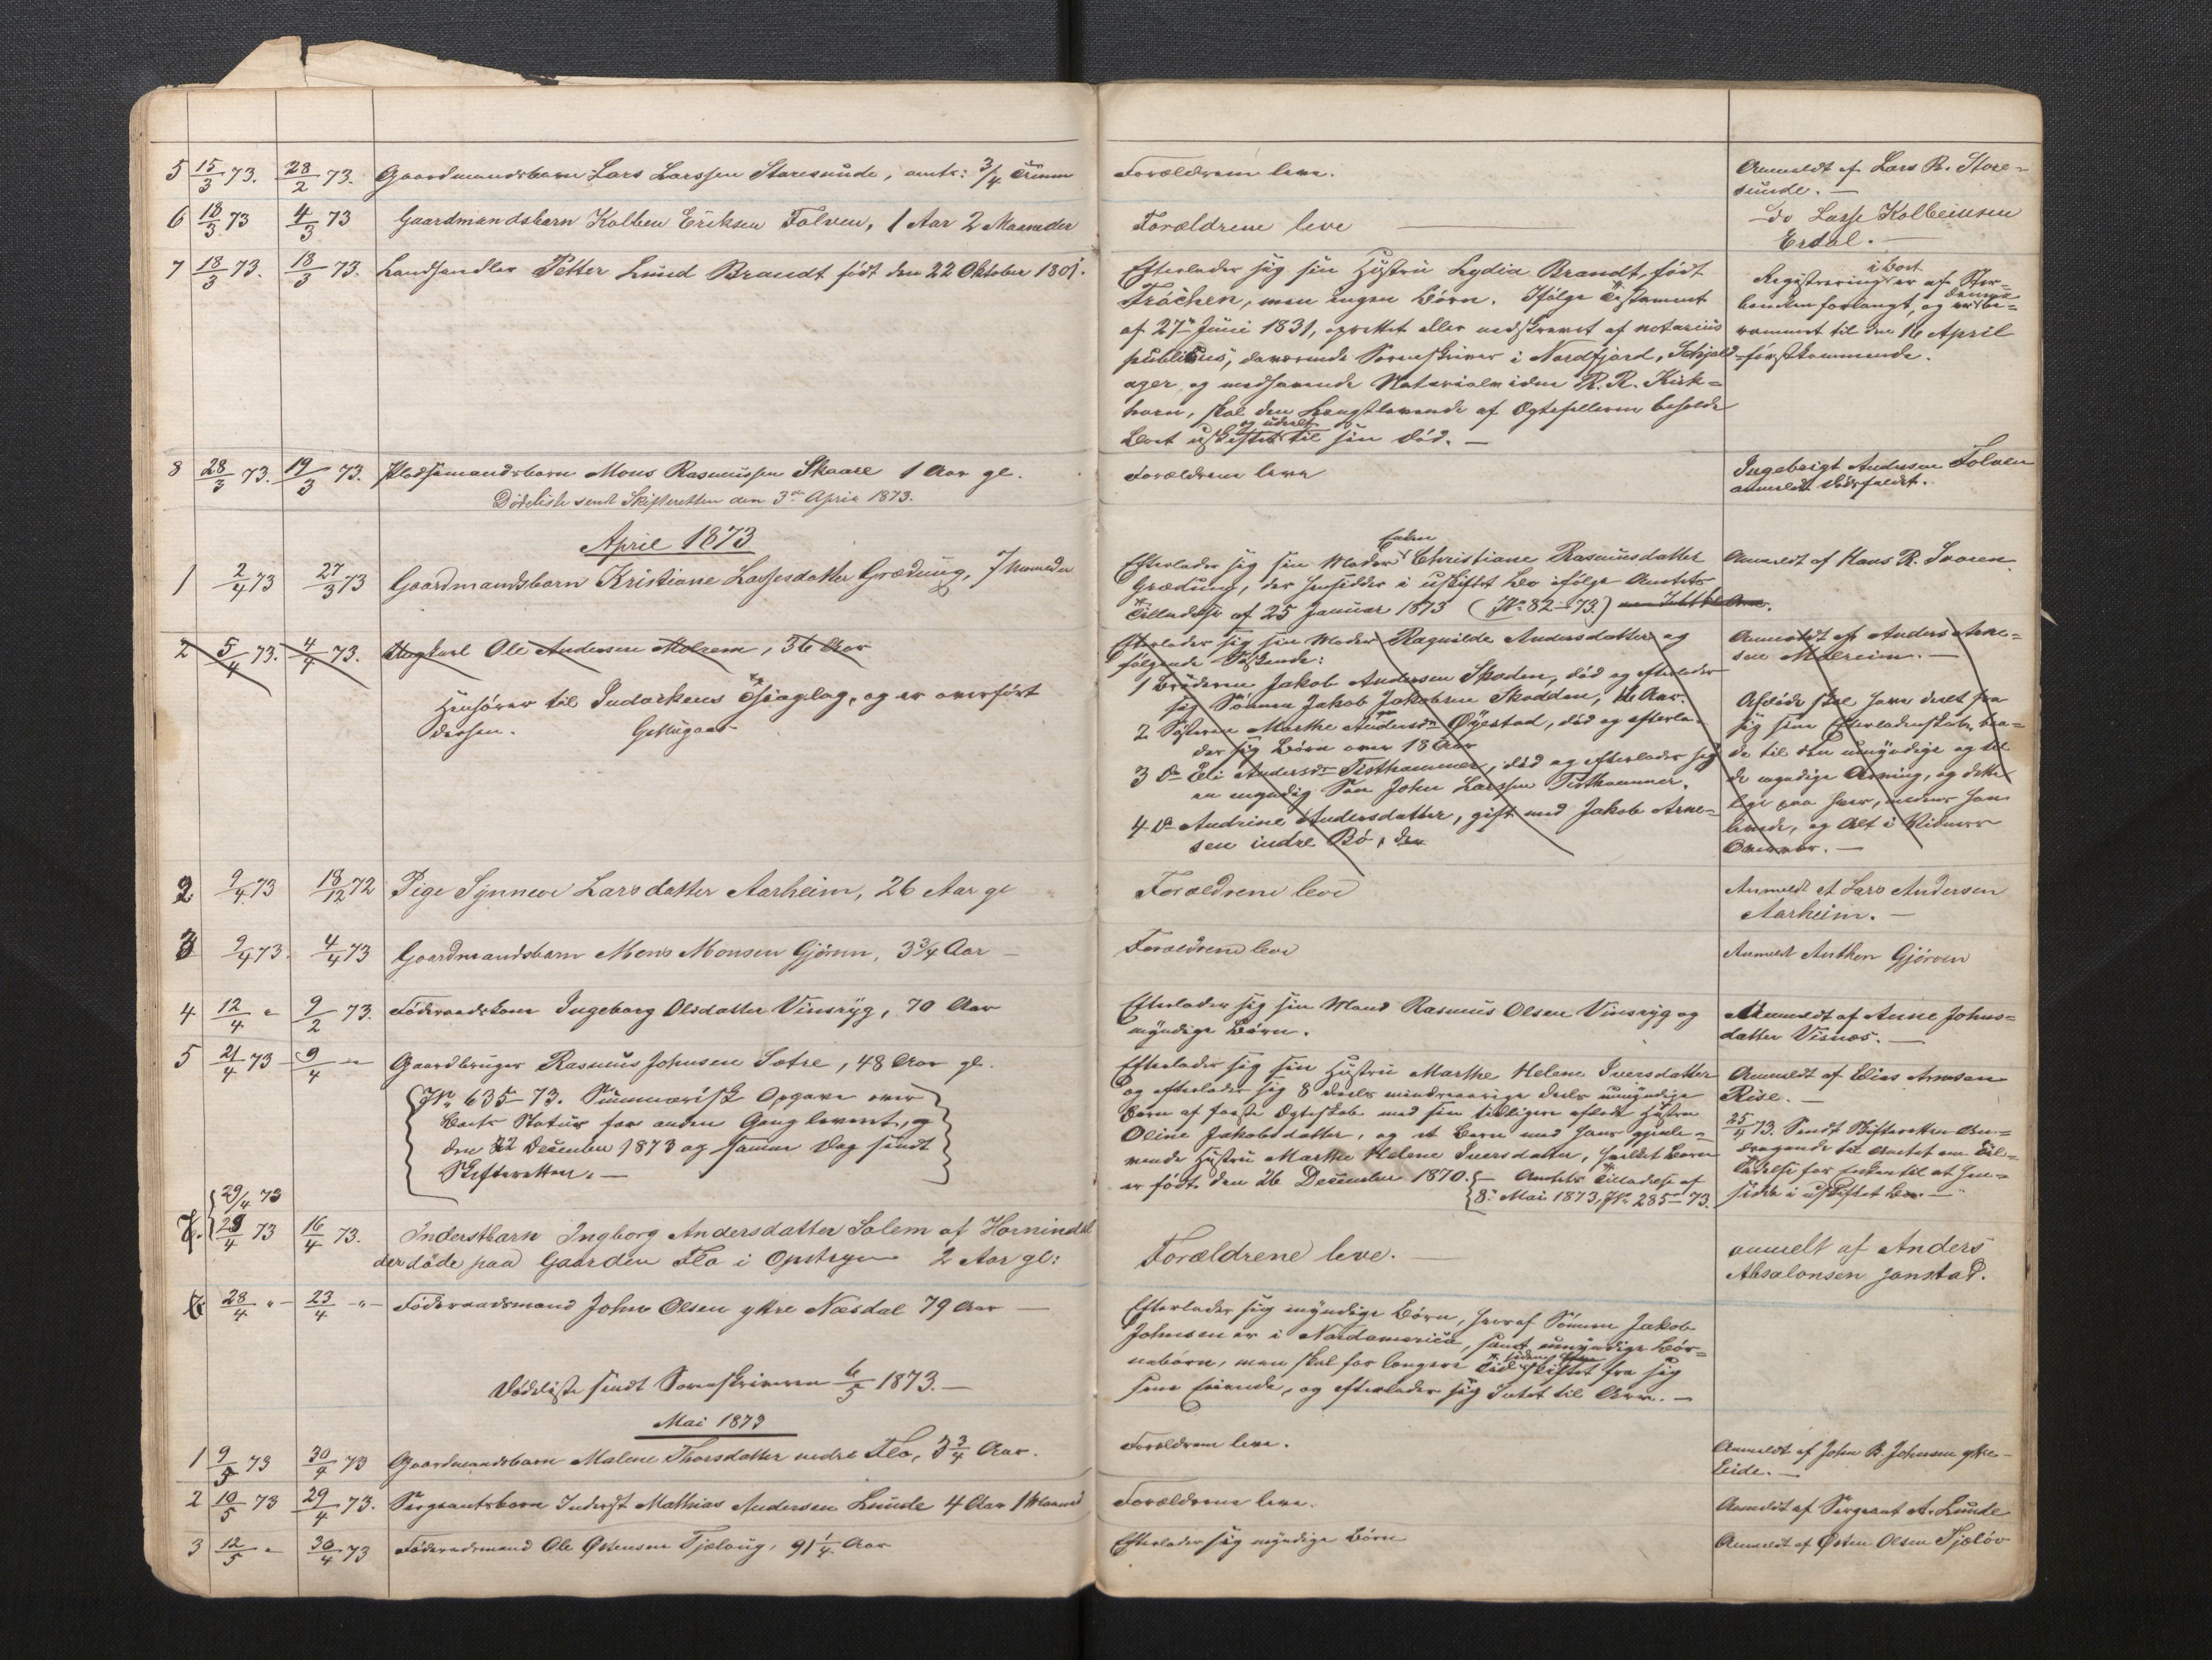 5 15/3 73. 28/2 73. Gaardmandsbarn Lars Larssen Storesunde, 3/4 Time
Forældrene leve.
Anmeldt af Lars R. Store-
sunde. —
6 18/3 73 4/3 73 Gaardmandsbarn Kolben Eriksen Folven, 1 Aar 2 Maaneder
Forældrene leve
Do Lasse Kolbeinsen
Erdal. —
7 18/3 73. 18/3 73. Landhandler Petter Lund Brandt født den 22 Oktober 1801.
Efterlader sig sin Hustru Lydia Brandt, født
Fråchen, men ingen Børn. Ifølge Testament
af 27de Juni 1831, oprettet eller nedskrevet af notarius
publicus, daværende Sorenskriver i Nordfjord, Schjeld-
ager og medhavende R. R. Kirk-
horn, skal den Længstlevende af Ægtefællerne beholde
Boet uskiftet og udeelt til sin Død. —
Registrering i Boet er af Ster-
benken forlangt, og denne er be-
rammet til den 16 April
førstkommende.
8 28/3 73. 19/3 73. Pladsemandsbarn Mons Rasmussen Skaare 1 Aar gl.
Forældrene leve
Ingebrigt Andersen Folven
anmeldt Dødsfaldet.
Dødsliste sendt Skifteretten den 3de April 1873.
April 1873
1 2/4 73 27/3 73 Gaardmandsbarn Kristiane Lassesdatter Grødung, 7 Maaneder
Efterlader sig sin Moder Enken Christiane Rasmusdatter
Grødung, der hensidder i uskiftet Bo ifølge Amtets
Tilladelse af 25 Januar 1873 (J№ 82-73.)
Anmeldt af Hans R. Svoren
2 5/4 73. 4/4 73. Ungkarl Ole Andersen Melrem, 36 Aar
Henhører til Indvikens Thinglag, og er overført
dersen.
Efterlader sig sin Moder Ragnilde Andersdatter og
følgende Søskende:
1 Broderen Jakob Andersen Skoden, død og efterlader
sig Sønnen Jakob Jakobsen Skodden, 16 Aar.
2 Søsteren Marthe Andersdr Øyestad, død og efterla-
der sig Børn over 18 Aar
3 Do Eli Andersdr Tisthammer, død og efterlader sig
en myndig Søn John Larssen Tisthammer.
4 Do Andrine Andersdatter, gift med Jakob Arne-
sen indre Bø, den
Anmeldt af Anders Arne-
sen Melreim. —
Afdøde skal have deelt fra
sig sin Efterladenskab, baa-
de til den umyndige og til
de myndige Arving, og dette
lige paa hver, medens han
levede, og Alt i Vidners
Overvær. —
2 9/4 73 18/12 72 Pige Synneve Larsdatter Aarheim, 26 Aar gl
Forældrene leve
Anmeldt af Lars Andersen
Aarheim. —
3 9/4 73. 4/4 73 Gaardmandsbarn Mons Monsen Gjørven, 3 3/4 Aar —
Forældrene leve
Anmeldt Anthon Gjørven
4 12/4 " 9/2 73. Føderaadskone Ingeborg Olsdatter Vinsryg, 70 Aar
Efterlader sig sin Mand Rasmus Olsen Vinsryg og
myndige Børn.
Anmeldt af Anne Johns-
datter Visnæs. —
5 21/4 73 9/4 " Gaardbruger Rasmus Johnsen Sætre, 48 Aar gl.
J№ 635-73. Summarisk Opgave over
Boets Status for anden Gang leveret, og
den 22 December 1873 og samme Dag sendt
Skifteretten. —
Efterlader sig sin Hustru Marthe Helene Iversdatter
og efterlader sig 8 deels mindreaarige deels umyndige
Børn af første Ægteskab med sin tidligere afdøde Hustru
Oline Jakobsdatter, og et Barn med hans gjenle-
vende Hustru Marthe Helene Iversdatter, hvilket Barn
er født den 26 December 1870. — Amtets Tilladelse af
8. Mai 1873, J№ 285-73.
Anmeldt af Elias Arnesen
Rise. —
25/4 73. Sendt Skifteretten An-
dragende til Amtet om Til-
ladelse for Enken til at hen-
sidde i uskiftet Bo. —
29/4 73
7. 28/4 73 16/4 73. Inderstbarn Ingborg Andersdatter Solem af Hornindal
der døde paa Gaarden Flo i Opstryn 2 Aar gl:
Forældrene leve. —
anmelt af Anders
Absalonsen Janstad.
6 28/4 " 23/4 " Føderaadsmand John Olsen yttre Næsdal 79 Aar —
Efterlader sig myndige Børn, hvoraf Sønnen Jakob
Johnsen er i Nordamerica, samt umyndige Bør-
nebørn, men skal for længere Tid siden skiftet fra sig
sine Eiende, og efterlader sig Intet til Arv. —
Dødsliste sendt Sorenskriveren 6/5 1873. —
Mai 1873
1 9/5 73 30/4 73 Gaardmandsbarn Malene Thorsdatter nedre Flo, 3 3/4 Aar.
Forældrene leve.
Anmeldt af John B. Johnsen yttre
Eide. —
2 10/5 73 29/4 73. Sergeantsbarn Inderst Mathias Andersen Lunde 4 Aar 1 Maaned
Forældrene leve.
Anmeldt af Sergeant A. Lunde
3 12/5 " 30/4 73 Føderaadsmand Ole Østensen Tjeloug, 91 1/4 Aar
Efterlader sig myndige Børn
Anmeldt af Østen Olsen Tjeløv